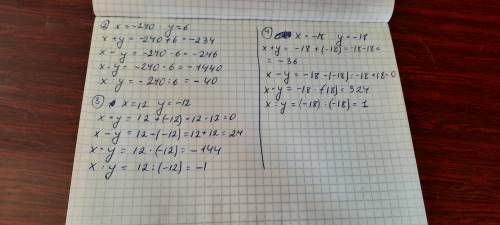 2) x=-240 y=6
x+y = -240+6=-234
x-y = -240-6=-246
x·y = -240·6=-1440
x:y = -240:6=-40
3) x=12 y=-12
x+y = 12+(-12)=12-12=0
x-y = 12-(-12)=12+12=24
x·y = 12·(-12)=-144
x:y = 12:(-12)=-1
4) x=-18 y=-18
x+y= -18+(-18)=-18-18=
= -36
x-y= -18-(-18)=-18+18=0
x·y= -18·(-18)=324
x:y= (-18):(-18)=1